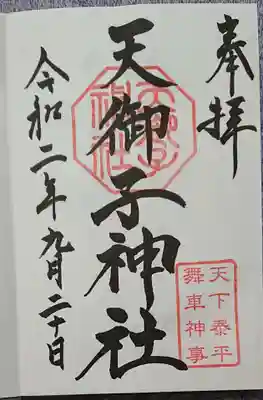 奉拝
天御子神社
天下泰平
舞車神事
令和二年九月二十日